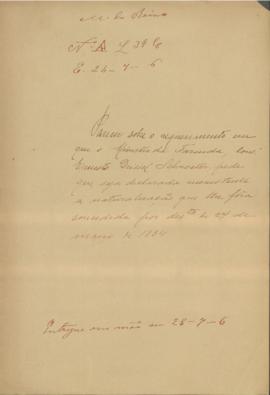 M. do Reino
Nº A L 39 C
E. 26-7-6
Parecer sobre o requerimento em
que o Ministro da Fazenda, Cons.
Ernesto Driesel Schroeter, pede
que seja declarada
a naturalização que lhe fôra
concedida por dec.to de 24 de
março de 1884
Entregue em mão em 28-7-6